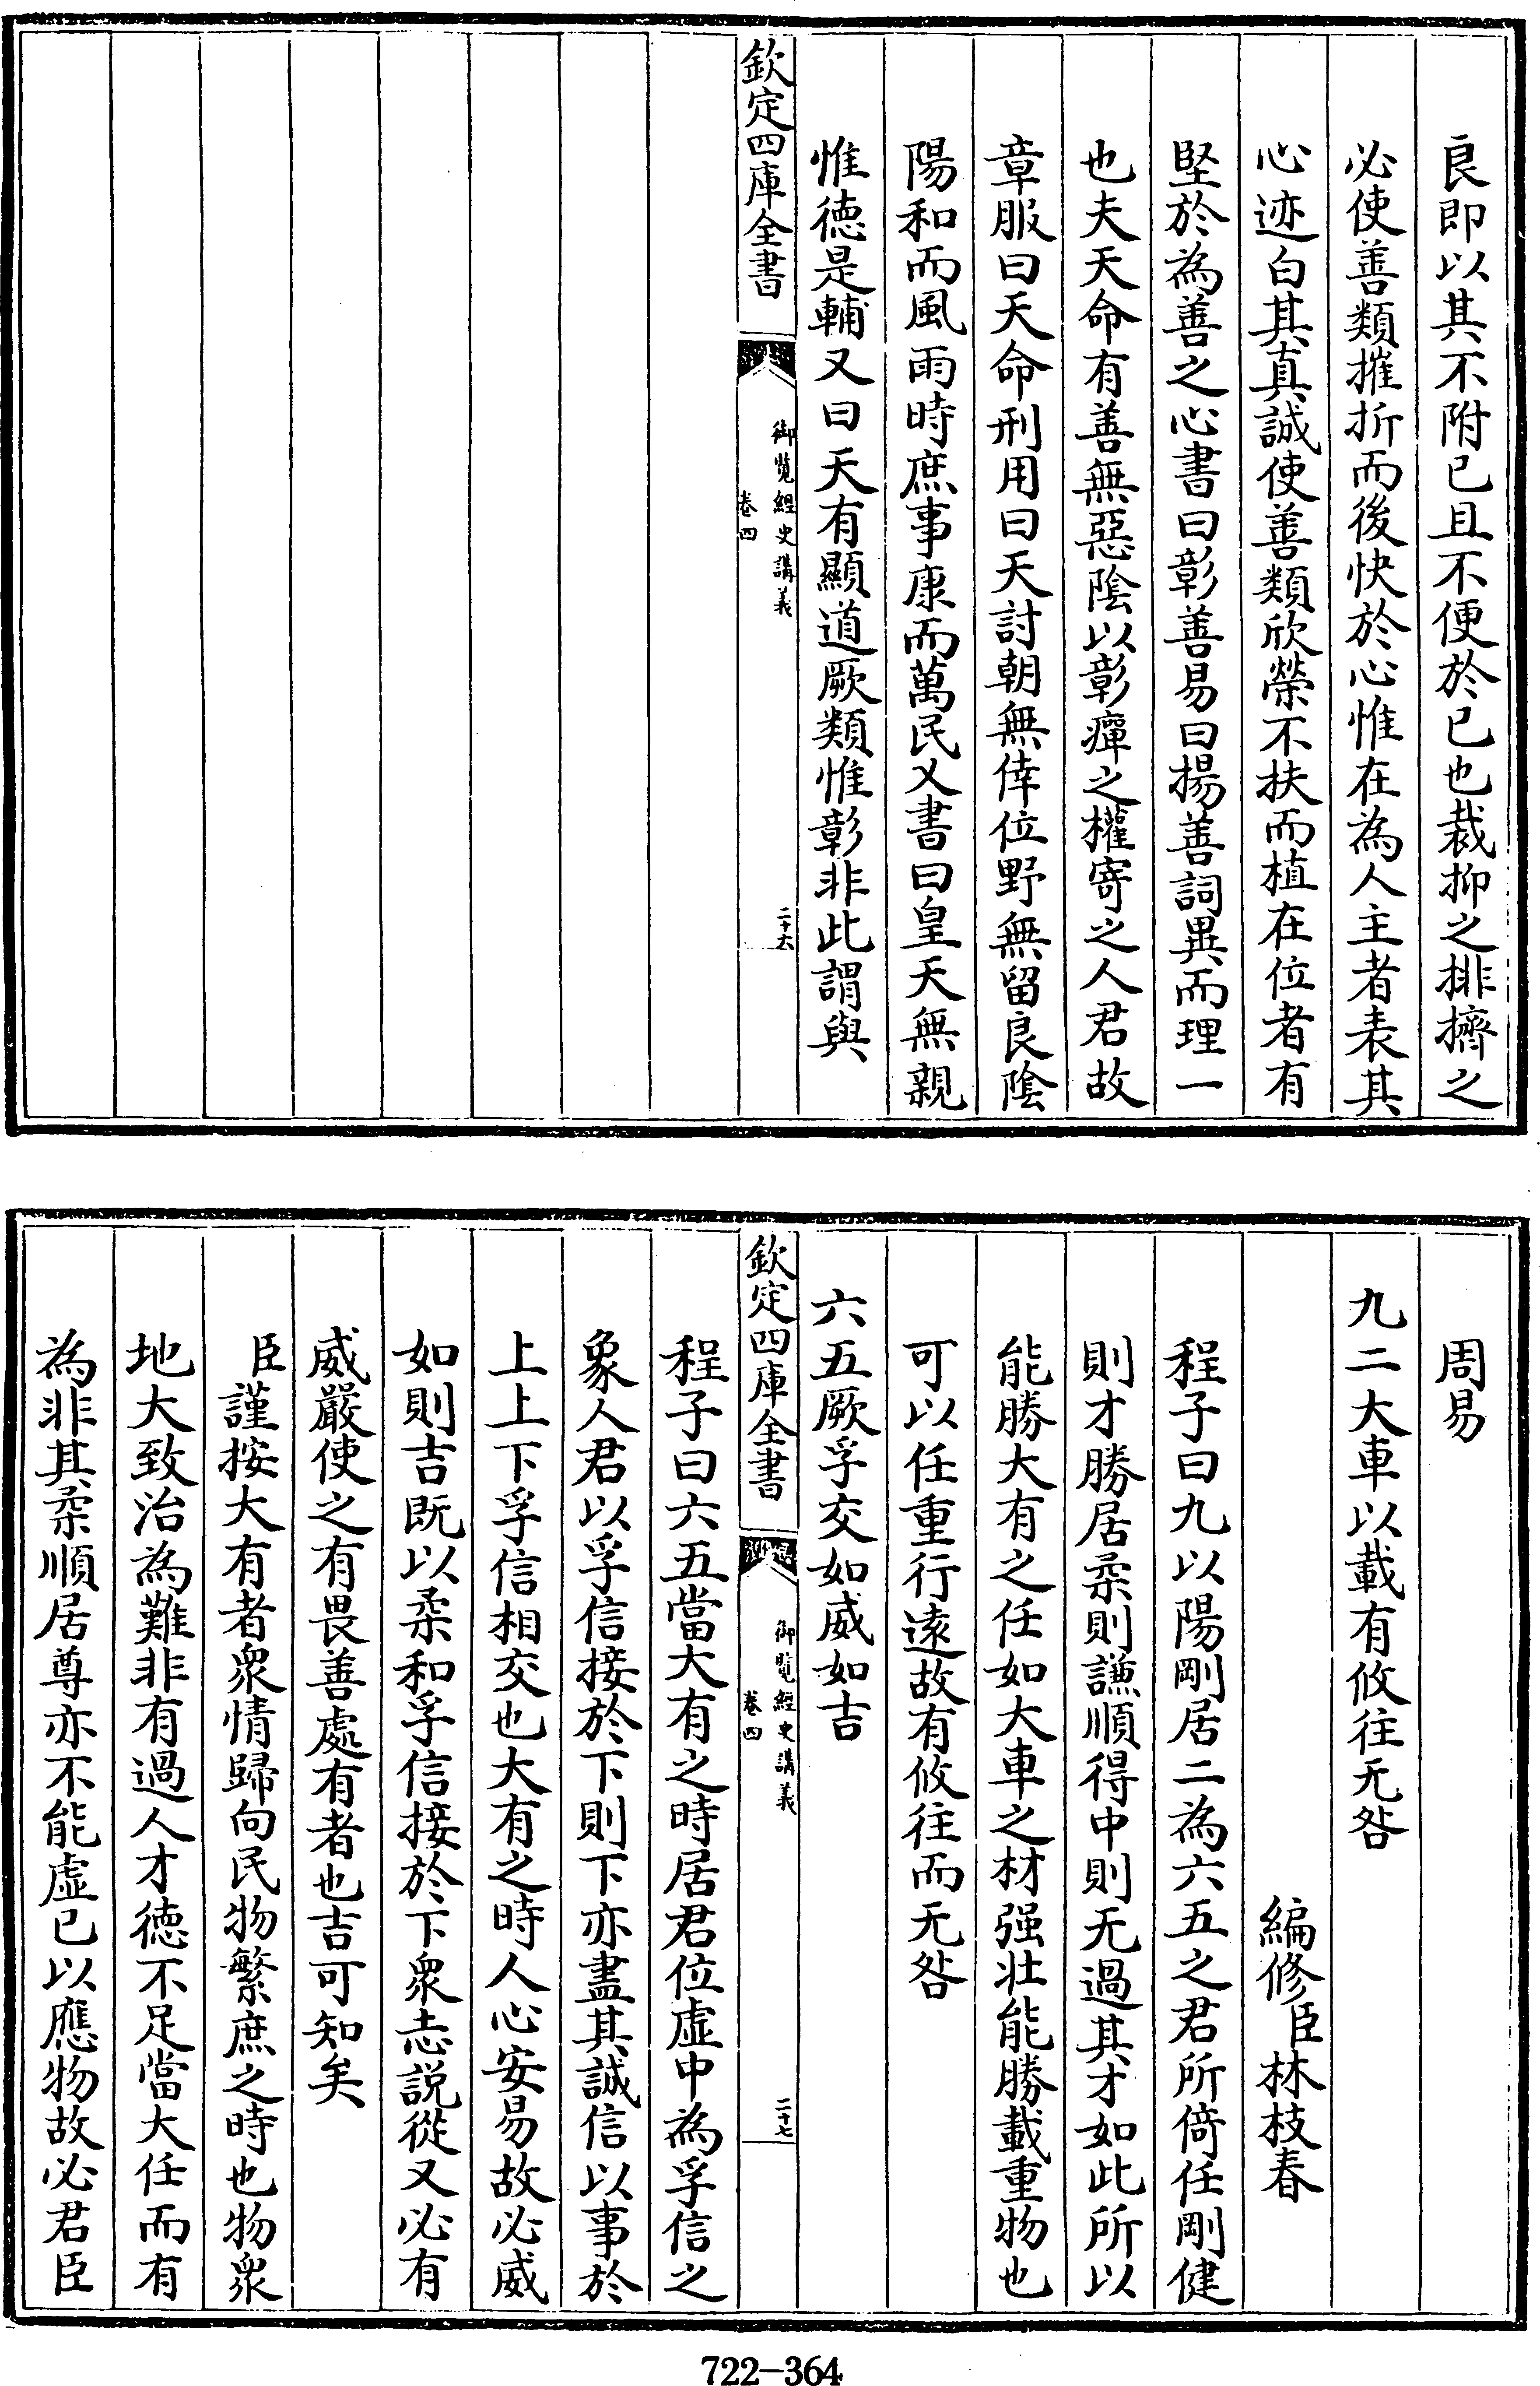 良即以其不附已且不便於已也裁抑之排擠之
必使善類摧折而後快於心惟在為人主者表其
心迹白其真誠使善類欣榮不扶而植在位者有
堅於為善之心書曰彰善易曰揚善詞異而理一
也夫天命有善無惡陰以彰癉之權寄之人君故
章服曰天命刑用曰天討朝無倖位野無留良陰
陽和而風雨時庶事康而萬民乂書曰皇天無親
惟徳是輔又曰天有顯道厥類惟彰非此謂與
欽定四庫全書
御覽經史講義
卷四
二十六
周易
九二大車以載有攸往无咎
編修臣林枝春
程子曰九以陽剛居二為六五之君所倚任剛健
則才勝居柔則謙順得中則无過其才如此所以
能勝大有之任如大車之材强壯能勝載重物也
可以任重行遠故有攸往而无咎
六五厥孚交如威如吉
欽定四庫全書
御覽經史講義
卷四
二十七
程子曰六五當大有之時居君位虛中為孚信之
象人君以孚信接於下則下亦盡其誠信以事於
上上下孚信相交也大有之時人心安易故必威
如則吉既以柔和孚信接於下衆志説從又必有
威嚴使之有畏善處有者也吉可知矣
臣謹按大有者衆情歸向民物繁庶之時也物衆
地大致治為難非有過人才徳不足當大任而有
為非其柔順居尊亦不能虛已以應物故必君臣
722-364